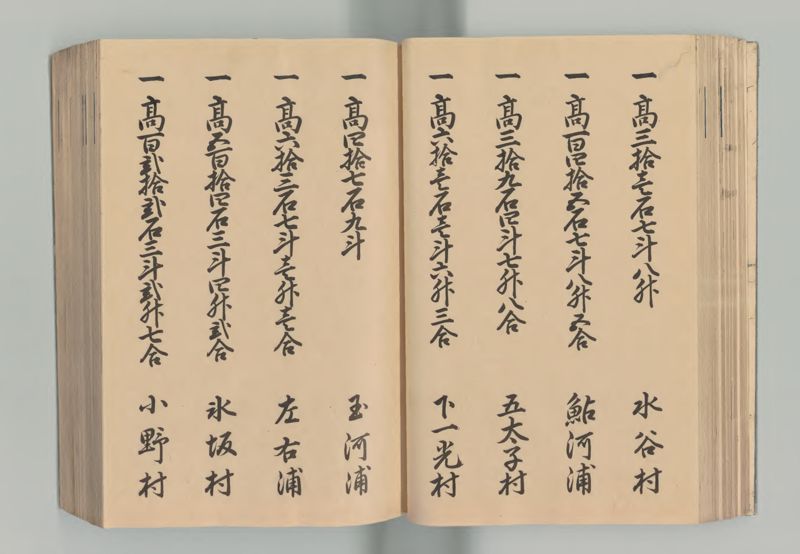 一高三拾壱石七斗八升 水谷村
一高百四拾五石七斗八升五合 鮎河浦
一高三拾九石四斗七升八合 五太子村
一高六拾壱石壱斗六升三合 下一光村
一高四拾七石九斗 玉河浦
一高六拾三石七斗壱升壱合 左右浦
一高五百拾四石三斗四升弐合 氷坂村
一高百弐拾弐石三斗弐升七合 小野村